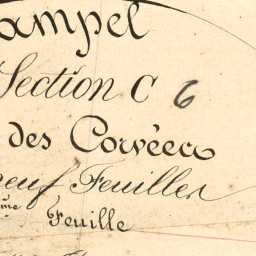 ampel
Section C 6
des Corvées
neuf Feuilles
me Feuille